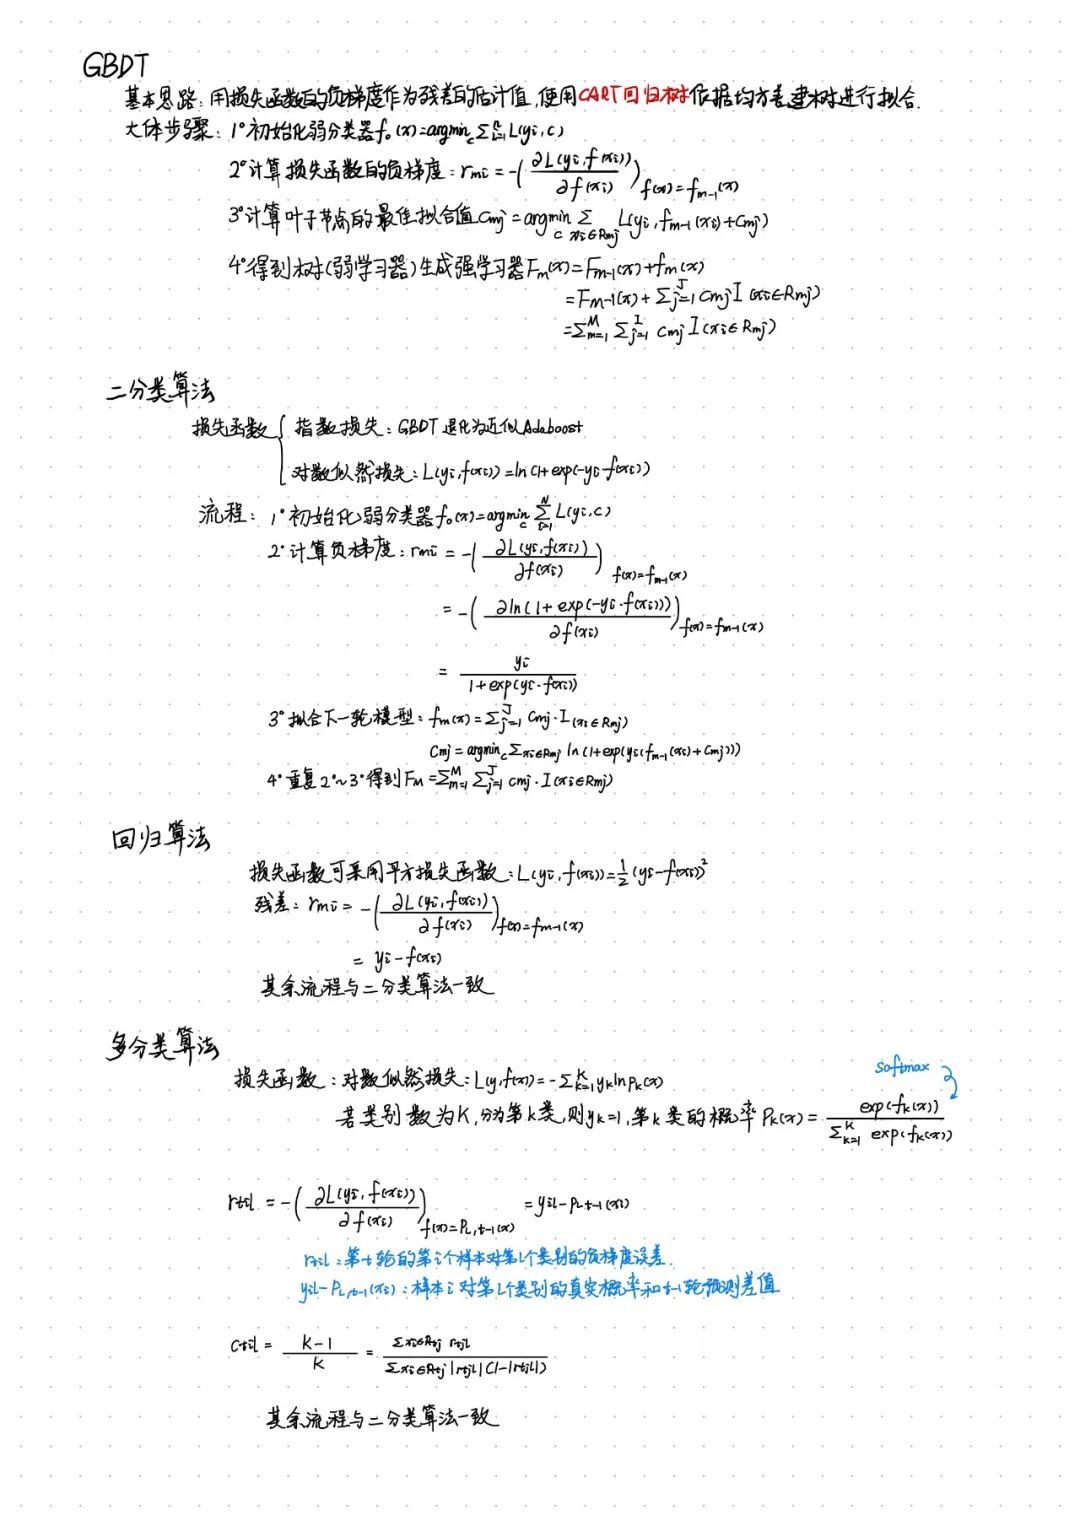 GBDT
基本思路：用损失函数的负梯度作为残差的估计值，使用CART回归树依据均方差建树进行拟合.
大体步骤：1°初始化弱分类器f₀(x)=argmin_c Σ_{i=1}^n L(yi,c)
2°计算损失函数的负梯度：rmi = -(∂L(yi,f(xi))/∂f(xi))_{f(x)=f_{m-1}(x)}
3°计算叶子节点的最佳拟合值Cmj = argmin_c Σ_{xi∈Rmj} L(yi,f_{m-1}(xi)+Cmj)
4°得到树(弱学习器)生成强学习器F_m(x)=F_{m-1}(x)+f_m(x)
=F_{m-1}(x)+Σ_{j=1}^J Cmj I(xi∈Rmj)
=Σ_{m=1}^M Σ_{j=1}^I Cmj I(xi∈Rmj)
二分类算法
损失函数{指数损失：GBDT退化为近似Adaboost
对数似然损失：L(yi,f(xi))=ln(1+exp(-yi·f(xi)))
流程：1°初始化弱分类器f₀(x)=argmin_c Σ_{i=1}^N L(yi,c)
2°计算负梯度：rmi = -(∂L(yi,f(xi))/∂f(xi))_{f(x)=f_{m-1}(x)}
= -(∂ln(1+exp(-yi·f(xi)))/∂f(xi))_{f(x)=f_{m-1}(x)}
= yi/(1+exp(yi·f(xi)))
3°拟合下一轮模型：f_m(x)=Σ_{j=1}^J Cmj·I(xi∈Rmj)
Cmj=argmin_c Σ_{xi∈Rmj} ln(1+exp(yi(f_{m-1}(xi)+Cmj)))
4°重复2°~3°得到F_M=Σ_{m=1}^M Σ_{j=1}^J Cmj·I(xi∈Rmj)
回归算法
损失函数可采用平方损失函数：L(yi,f(xi))=½(yi-f(xi))²
残差：rmi = -(∂L(yi,f(xi))/∂f(xi))_{f(x)=f_{m-1}(x)}
= yi-f(xi)
其余流程与二分类算法一致
多分类算法
损失函数：对数似然损失：L(y,f(x))=-Σ_{k=1}^K yk ln pk(x)
softmax
若类别数为K,分为第k类,则yk=1,第k类的概率Pk(x)=exp(fk(x))/Σ_{k=1}^K exp(fk(x))
rtil = -(∂L(yi,f(xi))/∂f(xi))_{f(x)=P_{l,t-1}(x)} = yil-P_{l,t-1}(xi)
rtil：第t轮的第i个样本对第l个类别的负梯度误差.
yil-P_{l,t-1}(xi)：样本i对第l个类别的真实概率和t-1轮预测差值
Ctil = K-1/K = Σ_{xi∈Rtj} rtjl/Σ_{xi∈Rtj}|rtjl|(1-|rtjl|)
其余流程与二分类算法一致